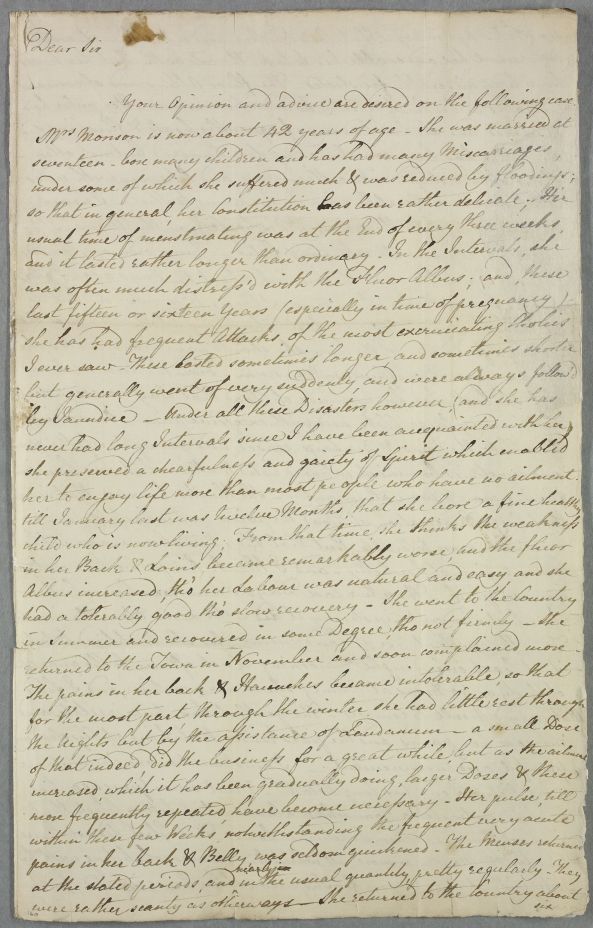 Dear Sir
Your Opinion and advice are desired on the following case.
Mrs Monson is now about 42 years of age - She was married at
seventeen - bore many children and has had many Miscarriages,
under some of which she suffered much & was reduced by floodings;
so that in general, her Constitution has been rather delicate. Her
usual time of menstruating was at the End of every three weeks,
and it lasted rather longer than ordinary. In the Intervals, she
was often much distress'd with the Fluor Albus; and these
last fifteen or sixteen Years (especially in time of pregnancy)
she has had frequent Attacks, of the most excruciating Cholics
I ever saw - These lasted sometimes longer and sometimes shorter
but generally went of very suddenly and were always follow'd
by Jaundice - Under all these Disasters however (and she has
never had long Intervals since I have been acquainted with her)
she preserved a chearfulness and gaiety of Spirit which enabl'd
her to enjoy life more than most people who have no ailment.
till January last was twelve Months, that she bore a fine healthy
child who is now living. From that time, she thinks the weakness
in her Back & Loins became remarkably worse and the fluor
Albus increased, tho' her Labour was natural and easy and she
had a tolerably good tho' slow recovery - She went to the Country
in Summer and recovered in some Degree, tho not firmly - She
returned to the Town in November and soon complained more -
The pains in her back & Haunches became intolerable, so that
for the most part through the winter she had little rest through
the Nights but by the assistance of Laudanum - a small Dose
of that indeed did the business for a great while, but as the ailment
increased, which it has been gradually doing, larger Doses & these
more frequently repeated have become necessary - Her pulse, till
within these few Weeks notwithstanding the frequent very acute
pains in her back & Belly was seldom quickened - The Menses returned
at the stated periods, and nearly in the usual quantity, pretty regularly - They
were rather scanty as otherways - She returned to the Country about
six